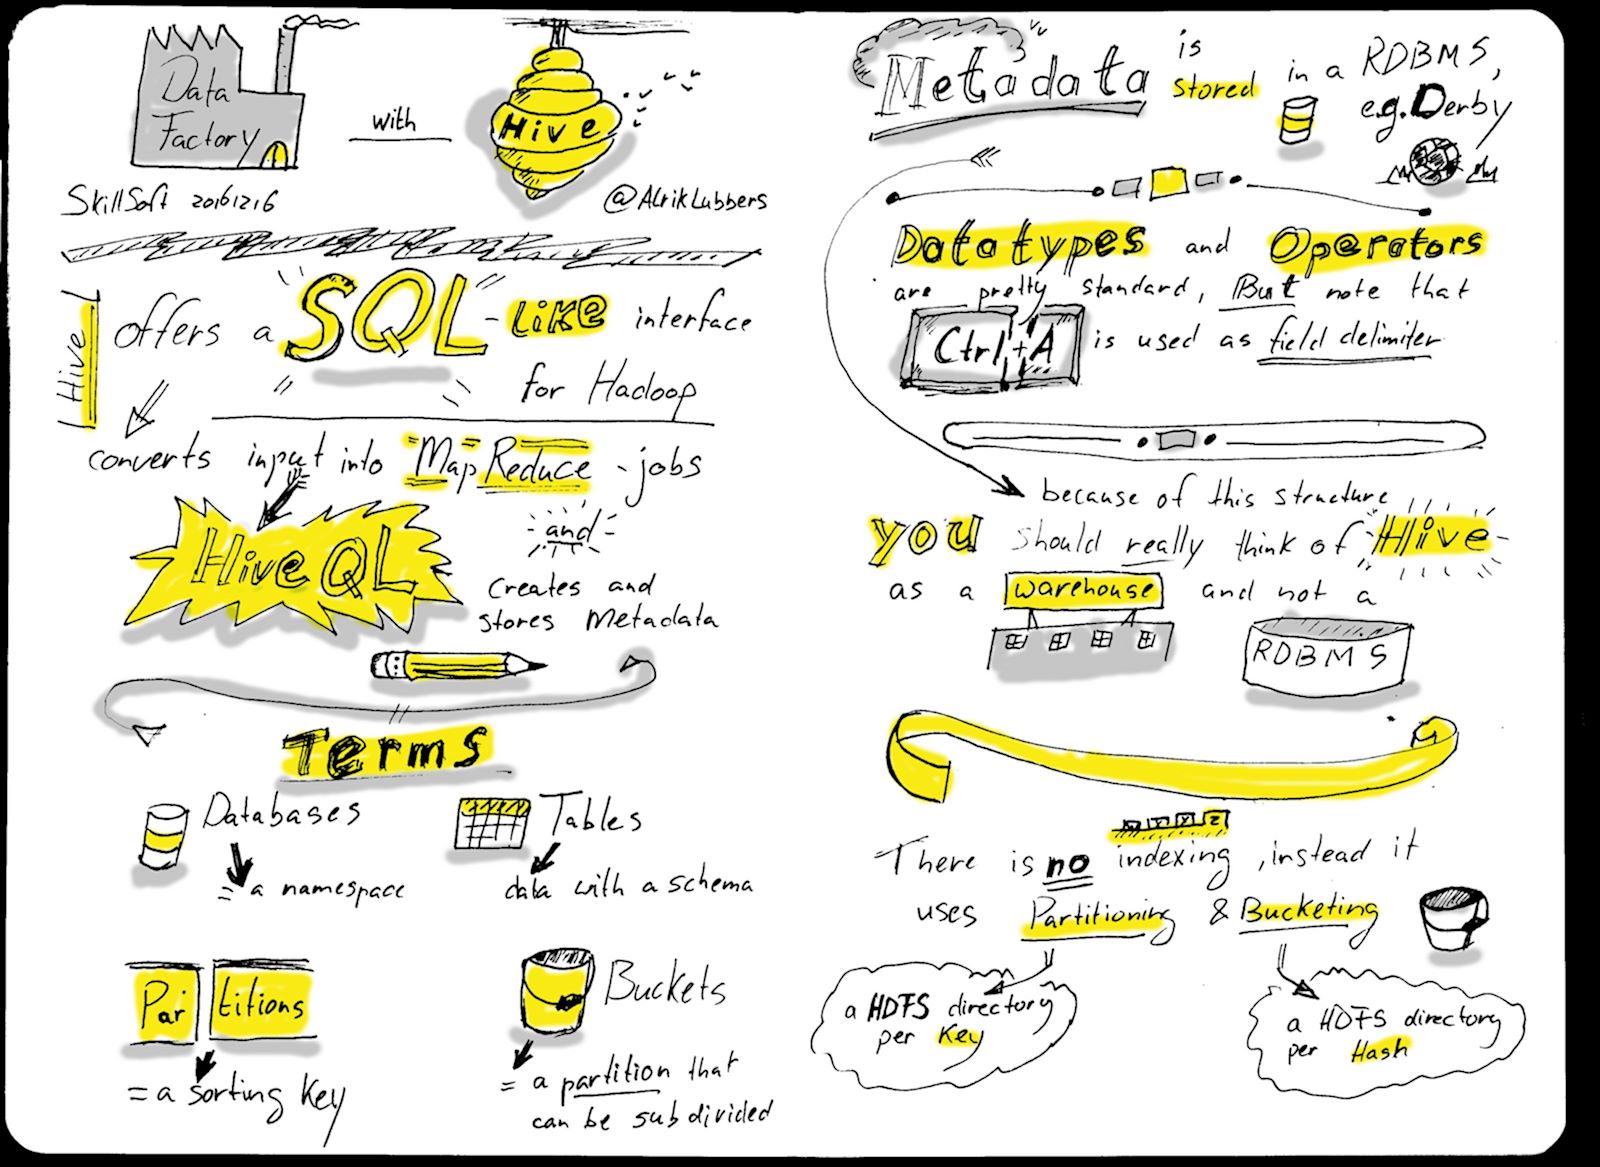 Data
Factory
with
Hive
SkillSoft 20161216
@AlrikLubbers
Hive
offers a "SQL"-like interface
for Hadoop
converts input into MapReduce-jobs
HiveQL
and
creates and
stores Metadata
Terms
Databases
= a namespace
Tables
data with a schema
Partitions
= a sorting key
Buckets
= a partition that
can be subdivided
Metadata is
stored in a RDBMS,
e.g. Derby
Datatypes and Operators
are pretty standard, But note that
Ctrl+A is used as field delimiter
because of this structure
you should really think of Hive
as a warehouse and not a
RDBMS
There is no indexing, instead it
uses Partitioning & Bucketing
a HDFS directory
per Key
a HDFS directory
per Hash